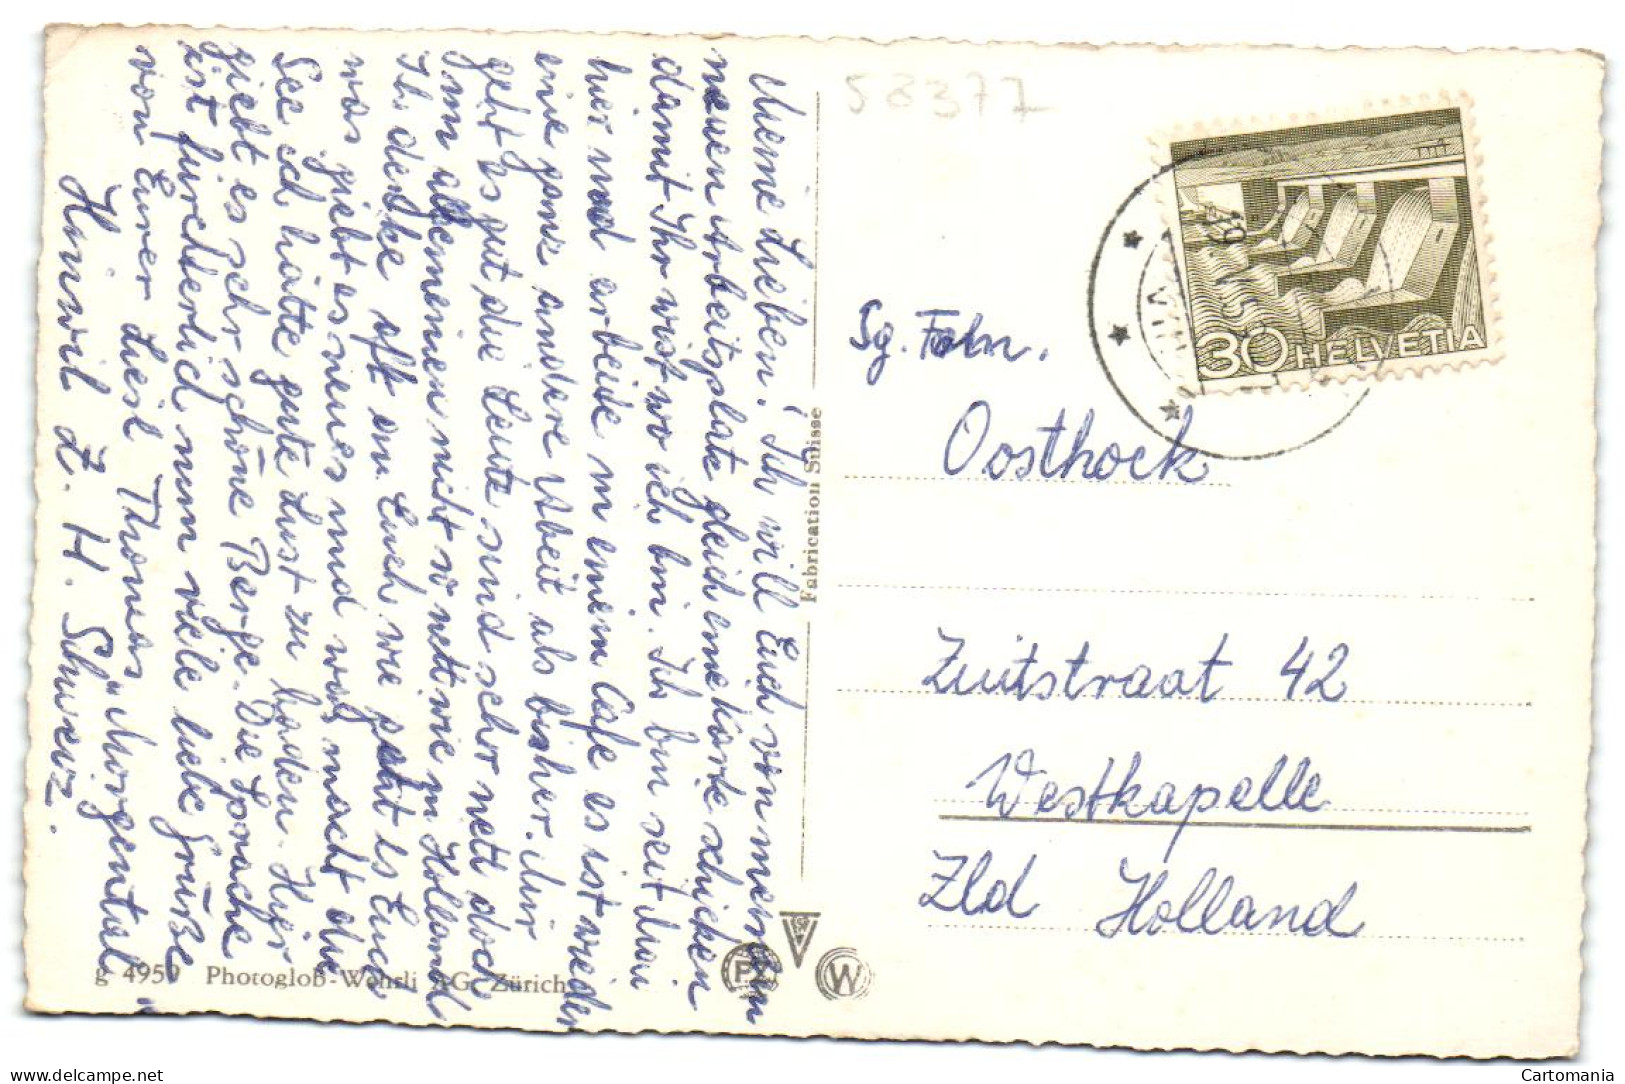 Meine Lieben! Ich will Euch von meinem
neuen Arbeitsplatz gleich eine Karte schicken
damit Ihr wist wo ich bin. Ich bin seit
hier und arbeide in einem Cafe es ist wieder
eine ganz andere Abeit als bisher. Mir
geht es gut, die Leute sind sehr nett doch
im allgemeinen nicht so nett wie in Holland
Ich denke oft an Euch wie geht es Euch
was giebt es neues und was macht die
See ich hätte gute Lust zu baden. Hier
giebt es sehr schöne Berge. Die Sprache
ist fürchterlich nun viele liebe Grüße
von Eurer Liesl Thomas "Morgental"
Hinwil Z. H. Schweiz.
g 4959 Photogloß-Wehrli AG. Zürich
Fabrication Suisse
G
PZ
W
58377
30 HELVETIA
Sg. Fam.
Oosthoek
Zuitstraat 42
Westkapelle
Zld Holland
Cartomania